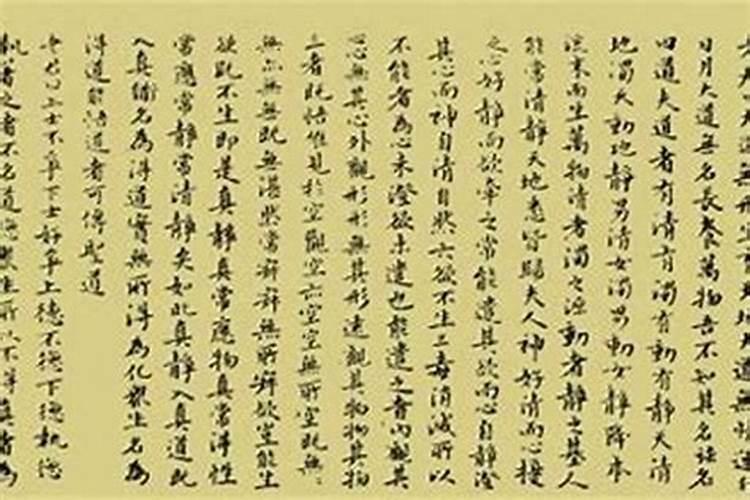 日月大道無名長養萬物吾不知其名强名
曰道夫道者有清有濁有動有靜天清
地濁天動地靜男清女濁男動女靜降本
流末而生萬物清者濁之源動者靜之基人
能常清靜天地悉皆歸夫人神好清而心擾
之心好靜而欲牽之常能遣其欲而心自靜澄
其心而神自清自然六欲不生三毒消滅所以
不能者為心未澄欲未遣也能遣之者內觀其
心無其心外觀形形無其形遠觀其物物其物
三者既悟惟見於空觀空亦空空無所空既無
無亦無無既無湛然常寂寂無所寂欲豈能生
欲既不生即是真靜真常應物真常得性
常應常靜常清靜矣如此真靜入真道既
入真道名為得道實無所得為化眾生名為
得道能悟道者可傳聖道
老君曰上士不爭下士好爭上德不德下德執德
執著之者不名道德眾生所以不得真道者為